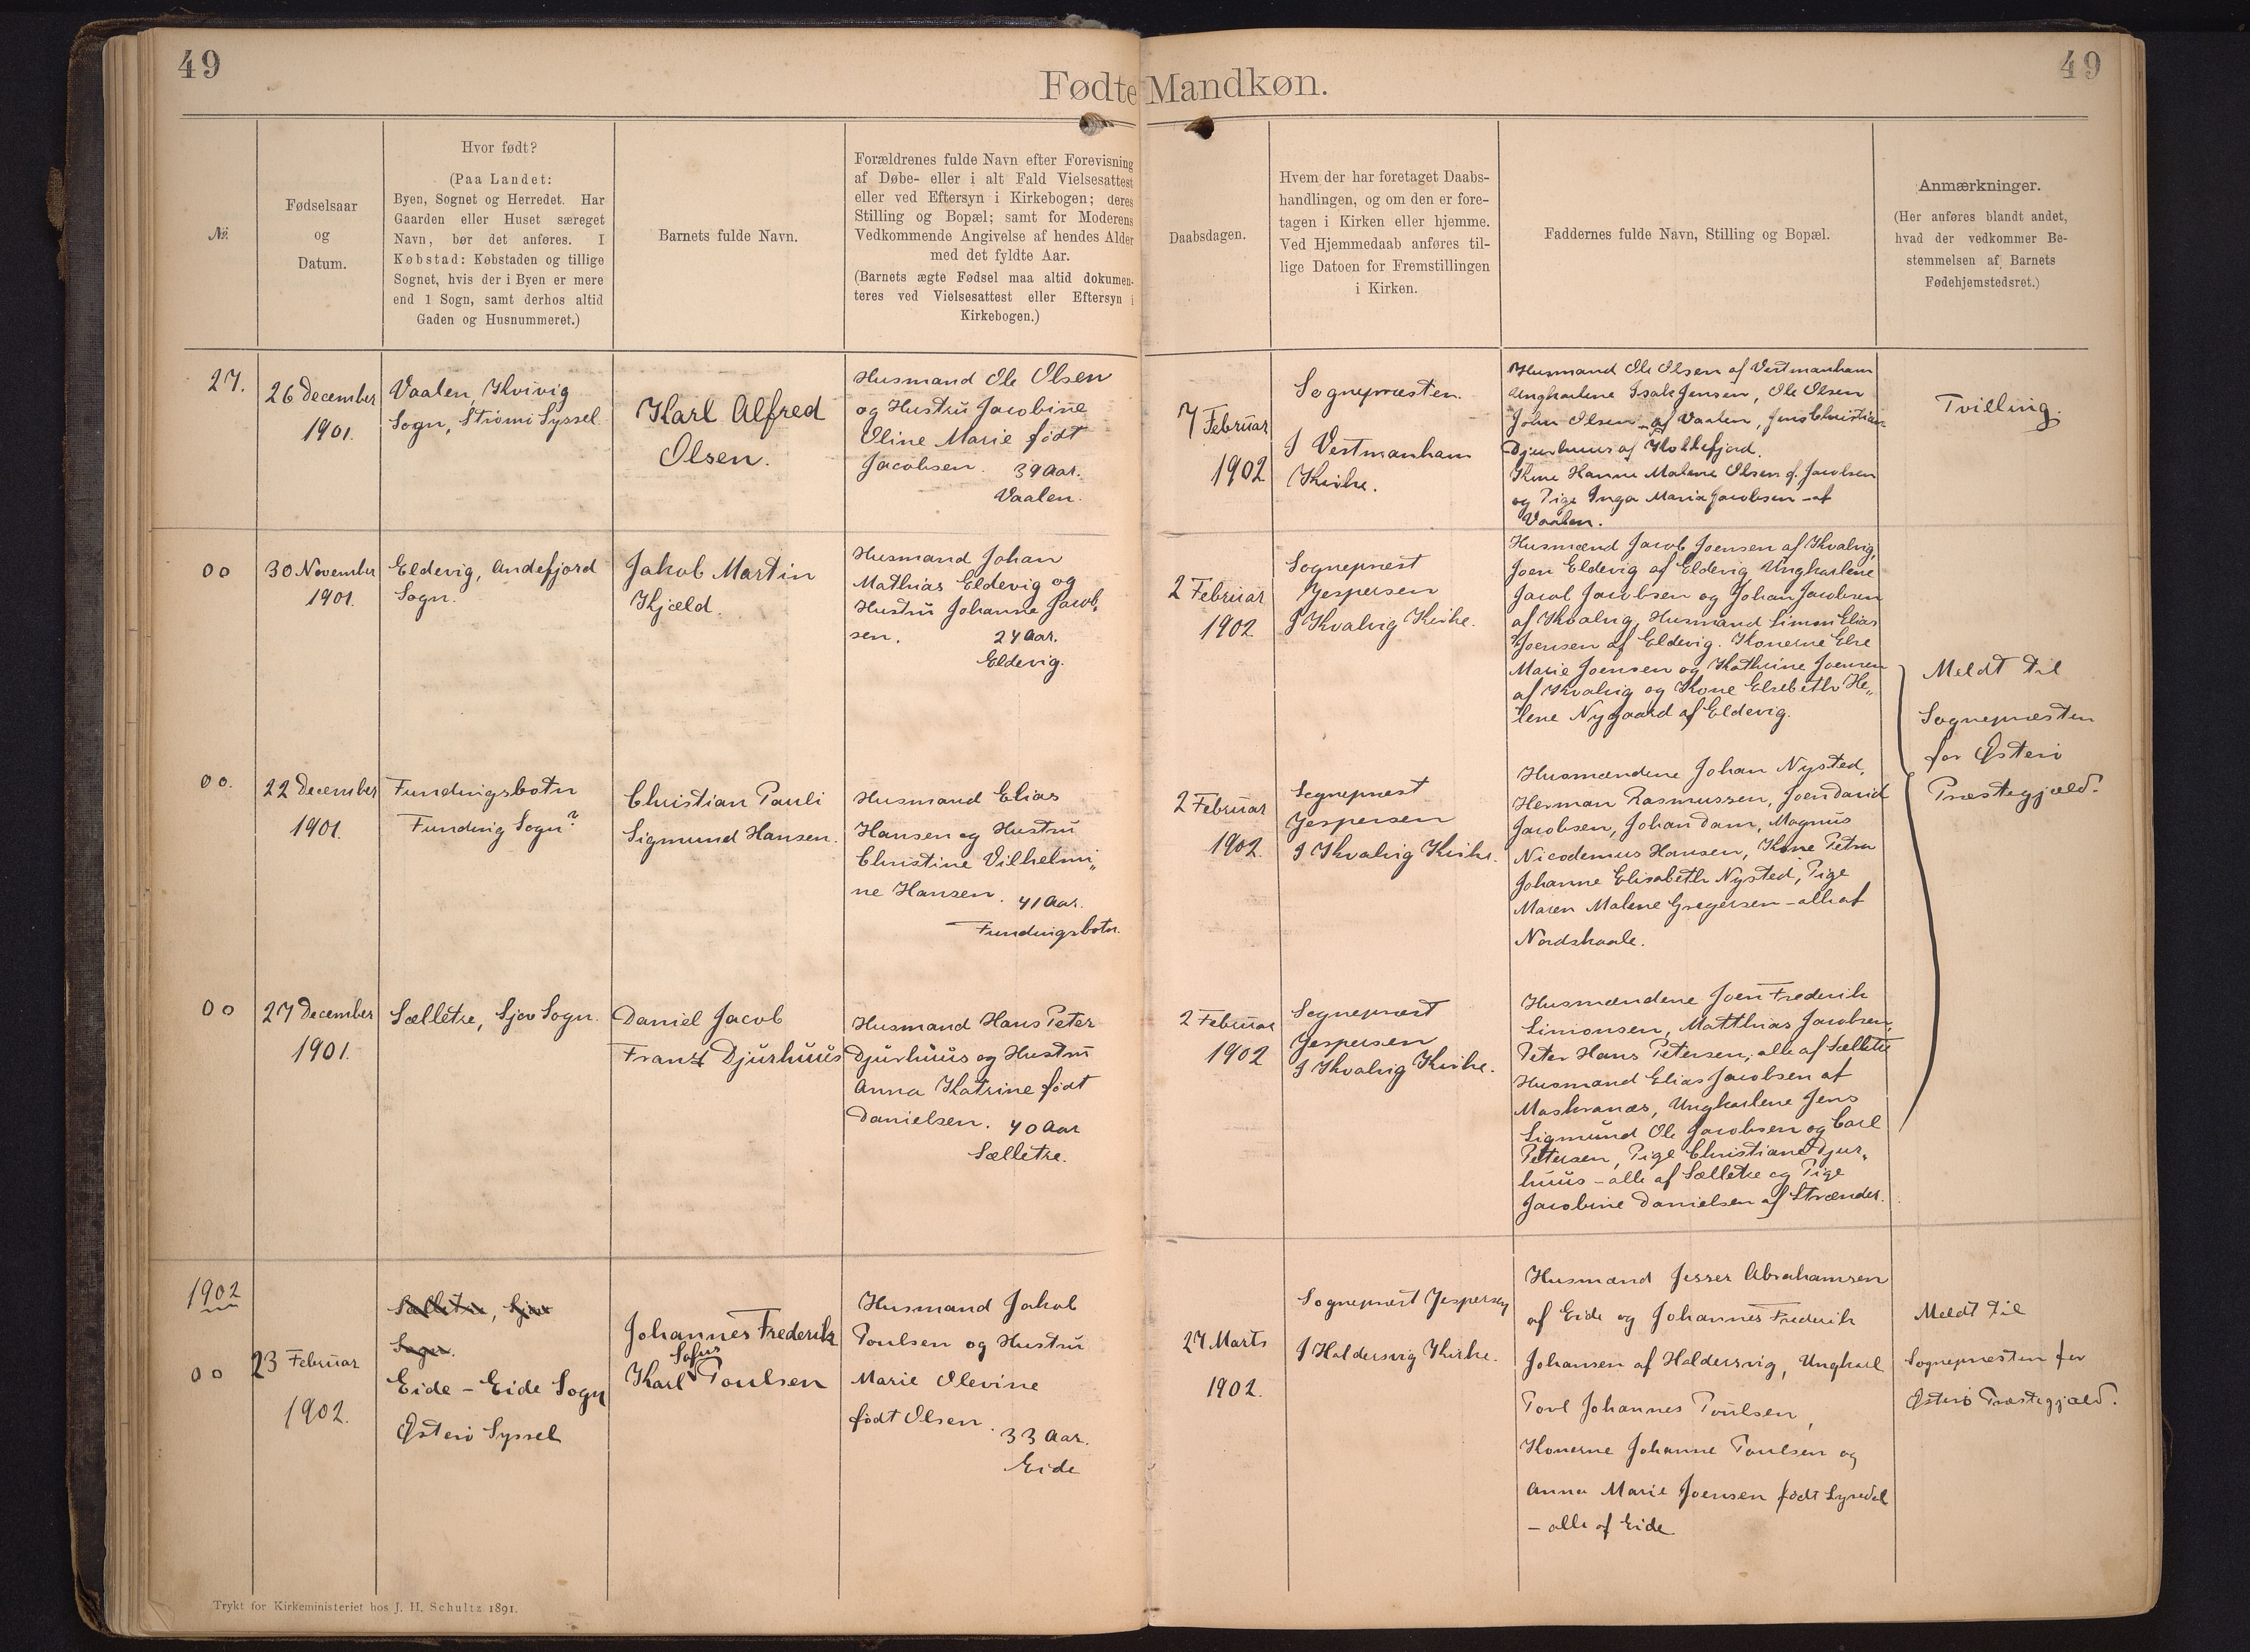 49
49
Fødte Mandkøn.
№.
Fødselsaar
og
Datum.
Hvor født?
(Paa Landet:
Byen, Sognet og Herredet. Har
Gaarden eller Huset særeget
Navn, bør det anføres. I
Købstad: Købstaden og tillige
Sognet, hvis der i Byen er mere
end 1 Sogn, samt derhos altid
Gaden og Husnummeret.)
Barnets fulde Navn.
Forældrenes fulde Navn efter Forevisning
af Døbe- eller i alt Fald Vielsesattest
eller ved Eftersyn i Kirkebogen; deres
Stilling og Bopæl; samt for Moderens
Vedkommende Angivelse af hendes Alder
med det fyldte Aar.
(Barnets ægte Fødsel maa altid dokumen-
teres ved Vielsesattest eller Eftersyn i
Kirkebogen.)
Daabsdagen.
Hvem der har foretaget Daabs-
handlingen, og om den er fore-
tagen i Kirken eller hjemme.
Ved Hjemmedaab anføres til-
lige Datoen for Fremstillingen
i Kirken.
Faddernes fulde Navn, Stilling og Bopæl.
Anmærkninger.
(Her anføres blandt andet,
hvad der vedkommer Be-
stemmelsen af Barnets
Fødehjemstedsret.)
27.
26 December
1901.
Vaalen, Kvivig
Sogn, Strømø Syssel
Karl Alfred
Olsen.
Husmand Ole Olsen
og Hustru Jacobine
Oline Marie født
Jacobsen. 39 Aar.
Vaalen.
7 Februar
1902
Sognepræsten.
I Vestmanham
Kirke.
Husmand Ole Olsen af Vestmanham
Ungkarlene Isak Jensen, Ole Olsen
John Olsen - af Vaalen, Jens Christian
Djurhuus af Kollefjord.
Kone Hanne Malene Olsen f. Jacobsen
og Pige Inga Maria Jacobsen - af
Vaalen.
Tvilling.
00
30 November
1901.
Eldevig, Andefjord
Sogn.
Jakob Martin
Kjæld.
Husmand Johan
Mathias Eldevig og
Hustru Johanne Jacob,
sen. 24 Aar.
Eldevig.
2 Februar
1902
Sognepræst
Jespersen
I Kvalvig Kirke.
Husmænd Jacob Joensen af Kvalvig,
Joen Eldevig af Eldevig Ungkarlene
Jacob Jacobsen og Johan Jacobsen
af Kvalvig, Husmand Simon Elias
Joensen af Eldevig. Konerne Else
Marie Joensen og Kathrine Joensen
af Kvalvig og Kone Elsebeth He„
lene Nygaard af Eldevig.
Meldt til
Sognepræsten
for Østerø
Præstegjæld.
00.
22 December
1901.
Fundingsbotn
Funding Sogn?
Christian Pauli
Sigmund Hansen.
Husmand Elias
Hansen og Hustru
Christine Vilhelmi„
ne Hansen. 41 Aar.
Fundingsbotn.
2 Februar
1902.
Sognepræst
Jespersen
I Kvalvig Kirke.
Husmændene Johan Nysted,
Herman Rasmussen, Joen David
Jacobsen, Johan Dam, Magnus
Nicodemus Hansen, Kone Petra
Johanne Elisabeth Nysted, Pige
Maren Malene Gregersen - alle af
Nordskaale.
00
27 December
1901.
Sælletre, Sjov Sogn.
Daniel Jacob
Frantz Djurhuus
Husmand Hans Peter
Djurhuus og Hustru
Anna Katrine født
Danielsen. 40 Aar
Sælletre.
2 Februar
1902
Sognepræst
Jespersen
I Kvalvig Kirke.
Husmændene Joen Frederik
Simonsen, Matthias Jacobsen,
Peter Hans Petersen, alle af Sælletre
Husmand Elias Jacobsen af
Maskranæs, Ungkarlene Jens
Sigmund Ole Jacobsen og Carl
Petersen, Pige Christiane Djur„
huus - alle af Sælletre og Pige
Jacobine Danielsen af Strænder.
1902
00
23 Februar
1902.
Sælletre, Sjov
Sogn.
Eide - Eide Sogn
Østerø Syssel
Johannes Frederik
Sofus
Karl Poulsen
Husmand Jakob
Poulsen og Hustru
Marie Olevine
født Olsen. 33 Aar.
Eide
27 Marts
1902.
Sognepræst Jespersen
I Haldersvig Kirke.
Husmænd Jesser Abrahamsen
af Eide og Johannes Frederik
Johansen af Haldersvig, Ungkarl
Povl Johannes Poulsen,
Konerne Johanne Poulsen og
Anna Marie Joensen født Lysedal
- alle af Eide
Meldt til
Sognepræsten for
Østerø Præstegjæld.
Trykt for Kirkeministeriet hos J. H. Schultz 1891.